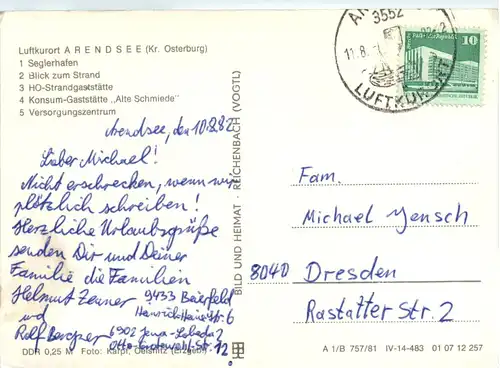 Luftkurort ARENDSEE (Kr. Osterburg)
1 Seglerhafen
2 Blick zum Strand
3 HO-Strandgaststätte
4 Konsum-Gaststätte „Alte Schmiede"
5 Versorgungszentrum
Arendsee, den 10.8.82
Lieber Michael!
Nicht erschrecken, wenn wir
plötzlich schreiben!
Herzliche Urlaubsgrüße
senden Dir und Deiner
Familie die Familien
Helmut Zenner 9433 Beierfeld
Heinrich Heine Str 6
und
Rolf Bergner 6902 Jena-Lobeda 2
Otto-Grotewohl-Str. 12
DDR 0,25 M Foto: Karpf, Oelsnitz (Erzgeb.)
BILD UND HEIMAT · REICHENBACH (VOGTL)
3552
11.8.
LUFTKURORT
10
Fam.
Michael Jensch
8040 Dresden
Rastatter Str. 2
A 1/B 757/81 IV-14-483 01 07 12 257